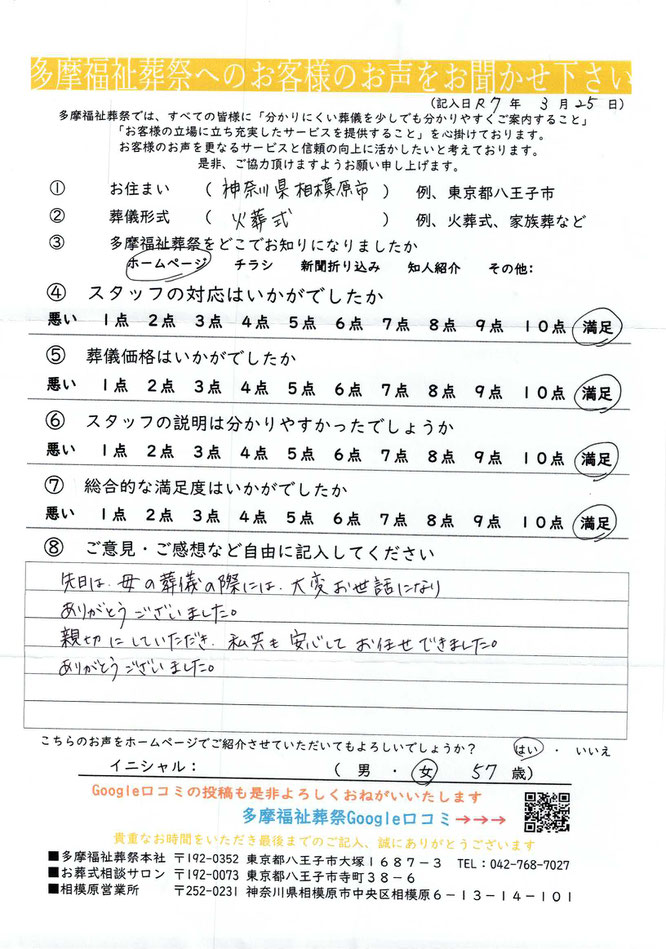 多摩福祉葬祭へのお客様のお声をお聞かせ下さい
(記入日 R7 年 3 月 25 日)
多摩福祉葬祭では、すべての皆様に「分かりにくい葬儀を少しでも分かりやすくご案内すること」
「お客様の立場に立ち充実したサービスを提供すること」を心掛けております。
お客様のお声を更なるサービスと信頼の向上に活かしたいと考えております。
是非、ご協力頂けますようお願い申し上げます。
① お住まい ( 神奈川県相模原市 ) 例、東京都八王子市
② 葬儀形式 ( 火葬式 ) 例、火葬式、家族葬など
③ 多摩福祉葬祭をどこでお知りになりましたか
ホームページ チラシ 新聞折り込み 知人紹介 その他:
④ スタッフの対応はいかがでしたか
悪い 1点 2点 3点 4点 5点 6点 7点 8点 9点 10点 満足
⑤ 葬儀価格はいかがでしたか
悪い 1点 2点 3点 4点 5点 6点 7点 8点 9点 10点 満足
⑥ スタッフの説明は分かりやすかったでしょうか
悪い 1点 2点 3点 4点 5点 6点 7点 8点 9点 10点 満足
⑦ 総合的な満足度はいかがでしたか
悪い 1点 2点 3点 4点 5点 6点 7点 8点 9点 10点 満足
⑧ ご意見・ご感想など自由に記入してください
先日は、母の葬儀の際には、大変お世話になり
ありがとうございました。
親切にしていただき、私共も安心してお任せできました。
ありがとうございました。
こちらのお声をホームページでご紹介させていただいてもよろしいでしょうか? はい ・ いいえ
イニシャル: ( 男 ・ 女 57 歳)
Google口コミの投稿も是非よろしくおねがいいたします
多摩福祉葬祭Google口コミ→→→
貴重なお時間をいただき最後までのご記入、誠にありがとうございます
■多摩福祉葬祭本社 〒192-0352 東京都八王子市大塚1687-3 TEL:042-768-7027
■お葬式相談サロン 〒192-0073 東京都八王子市寺町38-6
■相模原営業所 〒252-0231 神奈川県相模原市中央区相模原6-13-14-101